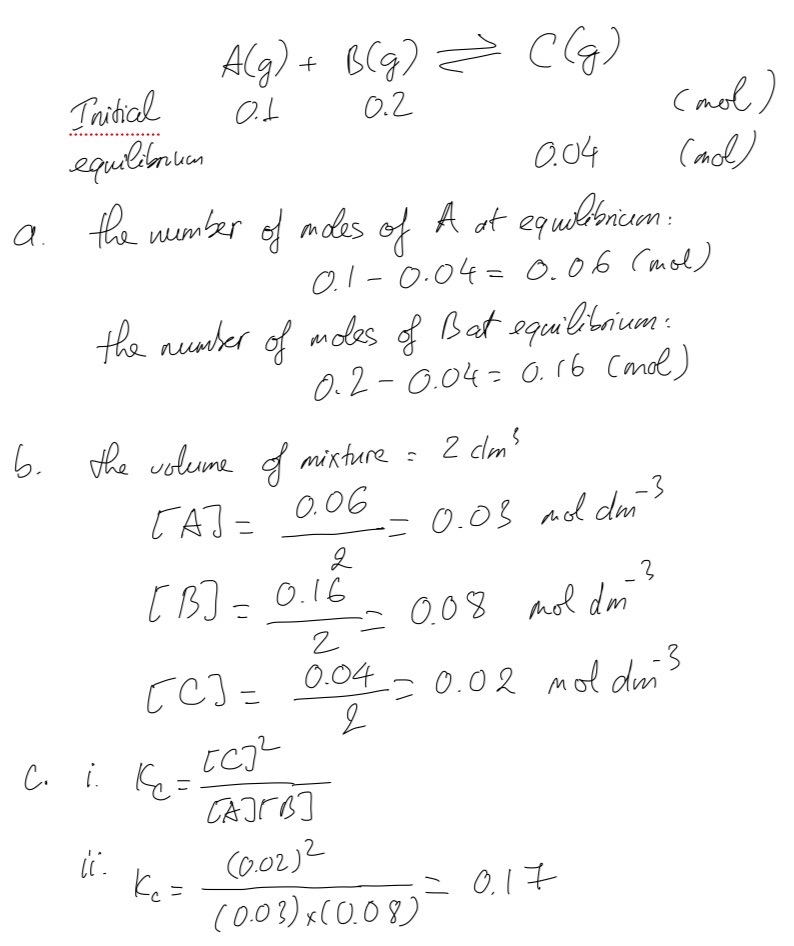 A(g) + B(g) ⇌ C(g)
Initial 0.1 0.2 (mol)
equilibrium 0.04 (mol)
a. the number of moles of A at equilibrium:
0.1 - 0.04 = 0.06 (mol)
the number of moles of B at equilibrium:
0.2 - 0.04 = 0.16 (mol)
b. the volume of mixture = 2 dm³
[A] = 0.06/2 = 0.03 mol dm⁻³
[B] = 0.16/2 = 0.08 mol dm⁻³
[C] = 0.04/2 = 0.02 mol dm⁻³
c. i. Kc = [C]²/[A][B]
ii. Kc = (0.02)²/(0.03)x(0.08) = 0.17